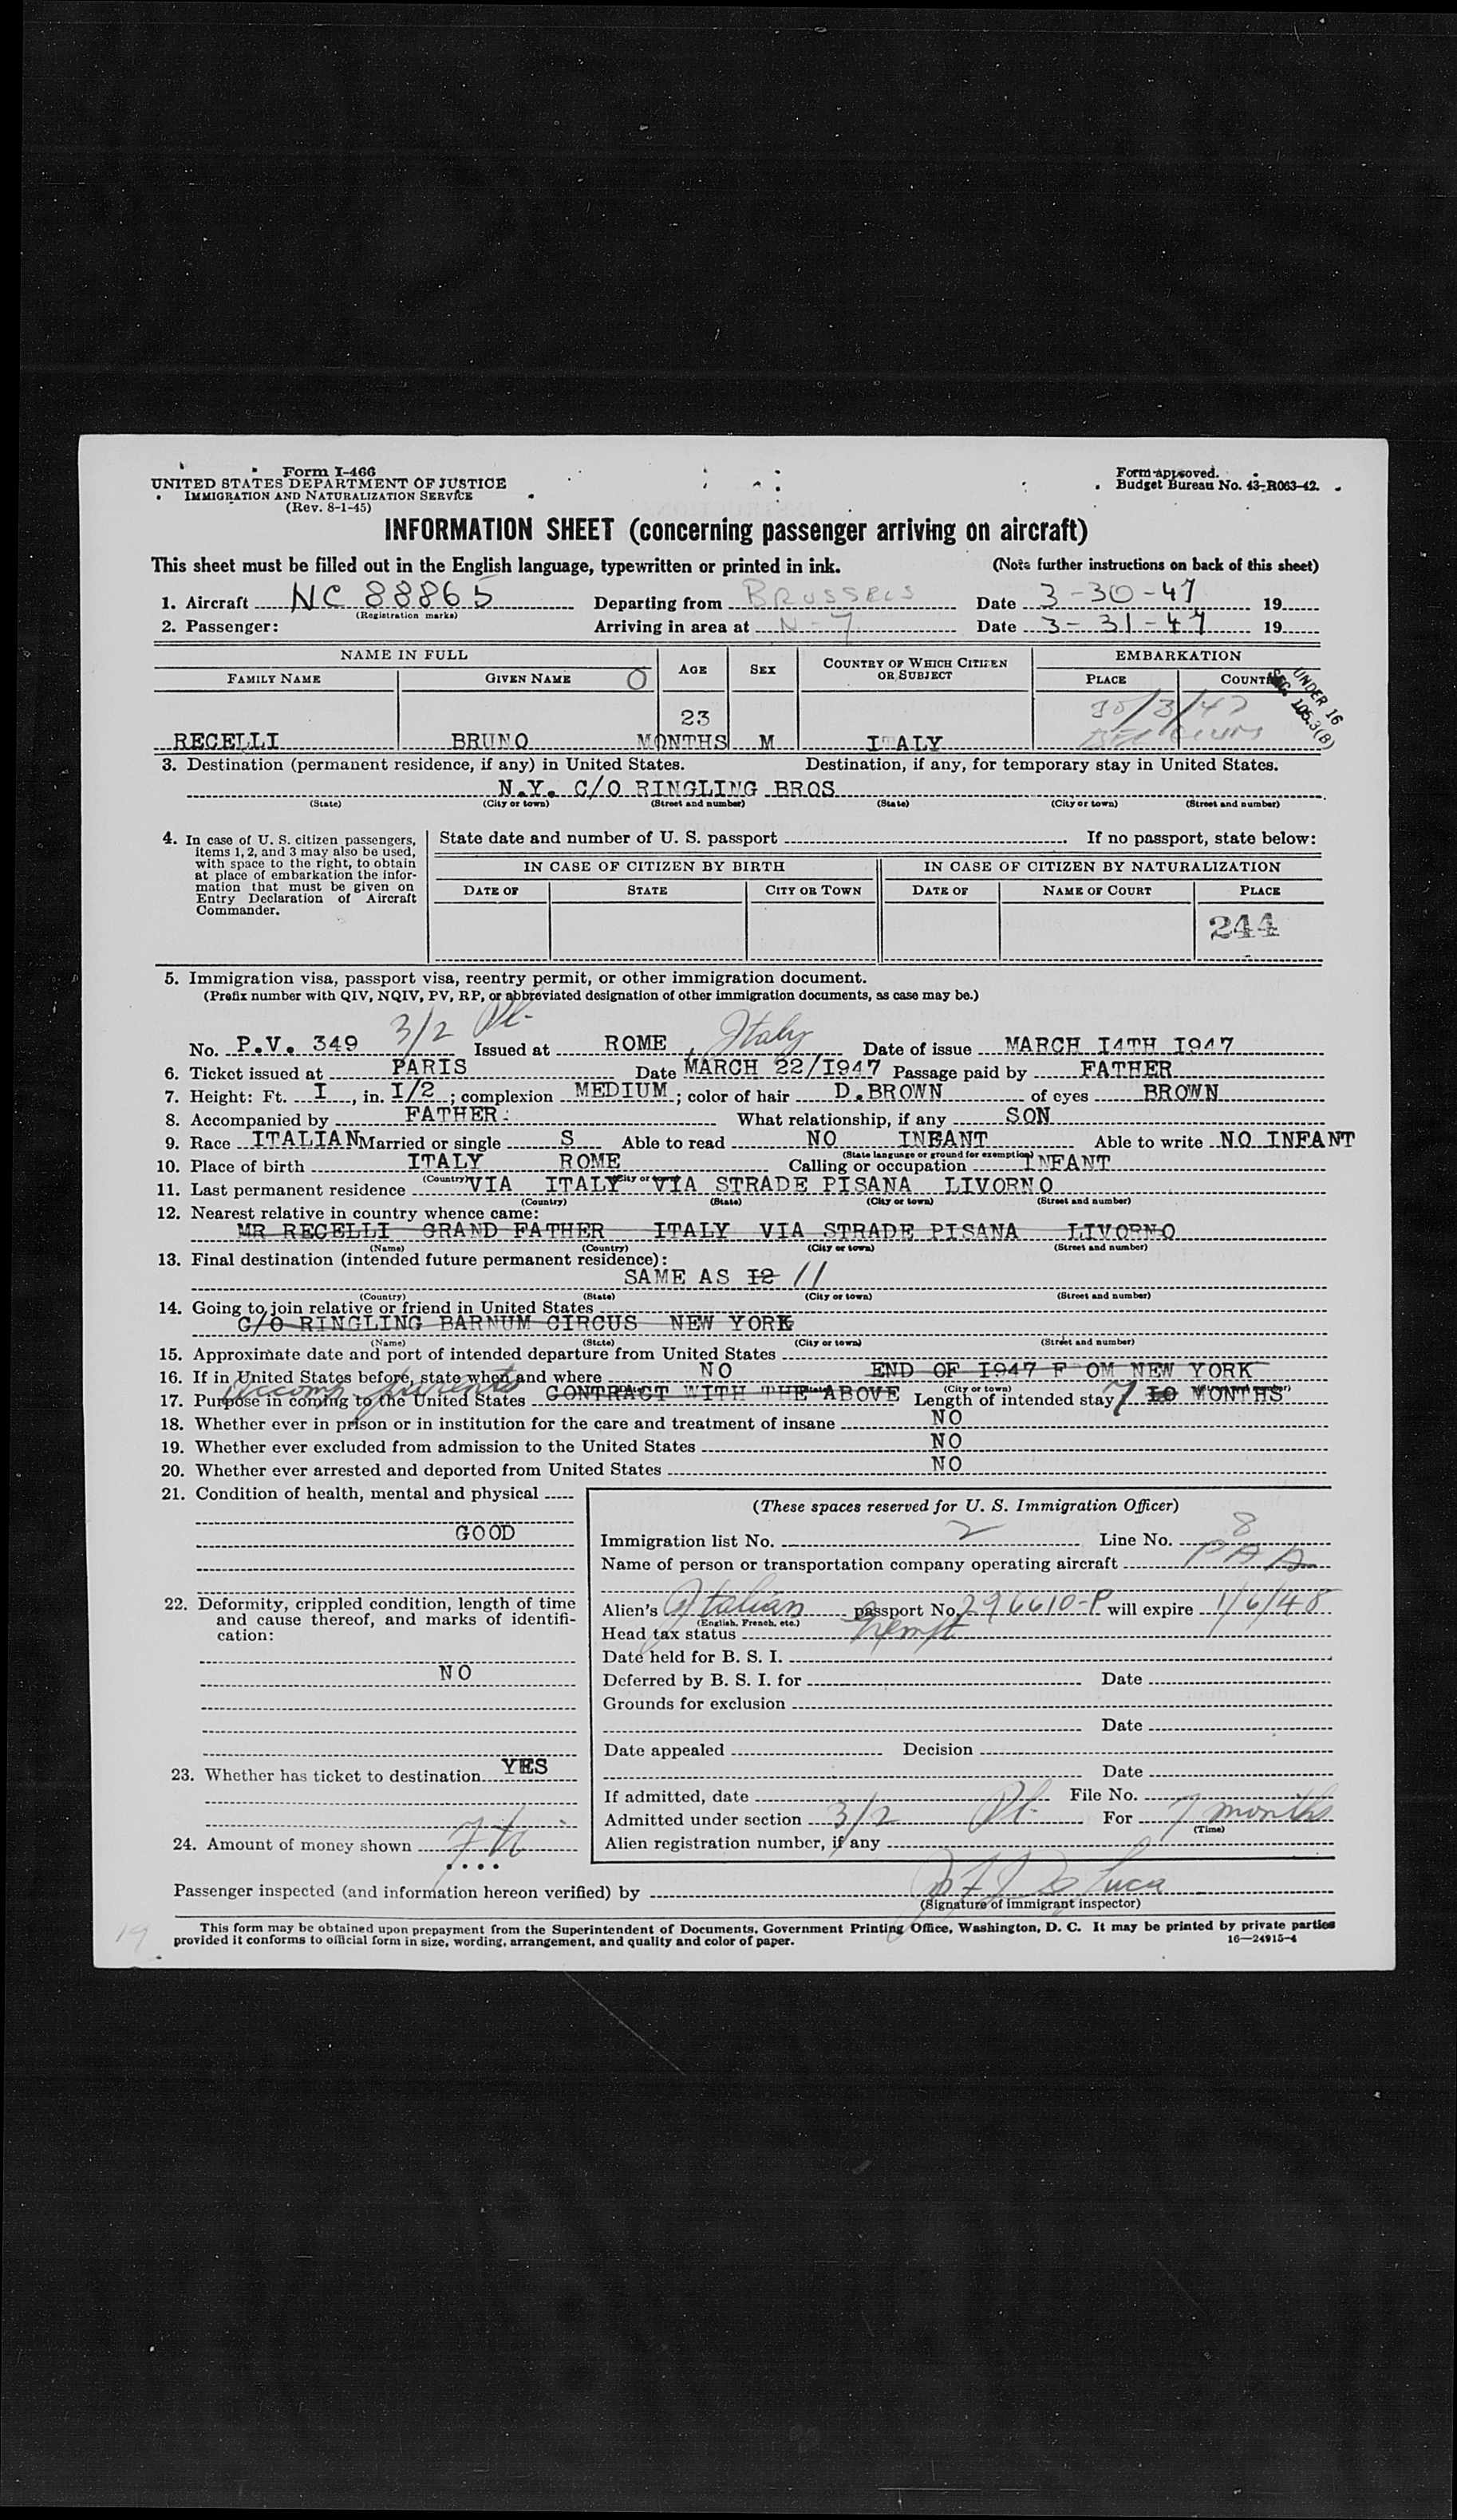 Form I-466
UNITED STATES DEPARTMENT OF JUSTICE
IMMIGRATION AND NATURALIZATION SERVICE
(Rev. 8-1-45)
Form approved.
Budget Bureau No. 43-R063-42.
INFORMATION SHEET (concerning passenger arriving on aircraft)
This sheet must be filled out in the English language, typewritten or printed in ink. (Note further instructions on back of this sheet)
1. Aircraft NC 88865 Departing from BRUSSELS Date 3-30-47 19
(Registration marks)
2. Passenger: Arriving in area at N-7 Date 3-31-47 19
NAME IN FULL AGE SEX COUNTRY OF WHICH CITIZEN OR SUBJECT EMBARKATION
FAMILY NAME GIVEN NAME O PLACE COUNTRY
UNDER 16
SEC. 105.3(B)
23 30/3/47
RECELLI BRUNO MONTHS M ITALY
3. Destination (permanent residence, if any) in United States. Destination, if any, for temporary stay in United States.
N.Y. C/O RINGLING BROS
(State) (City or town) (Street and number) (State) (City or town) (Street and number)
4. In case of U. S. citizen passengers, items 1, 2, and 3 may also be used, with space to the right, to obtain at place of embarkation the information that must be given on Entry Declaration of Aircraft Commander.
State date and number of U. S. passport If no passport, state below:
IN CASE OF CITIZEN BY BIRTH IN CASE OF CITIZEN BY NATURALIZATION
DATE OF STATE CITY OR TOWN DATE OF NAME OF COURT PLACE
244
5. Immigration visa, passport visa, reentry permit, or other immigration document.
(Prefix number with QIV, NQIV, PV, RP, or abbreviated designation of other immigration documents, as case may be.)
3/2 Pl.
No. P.V. 349 Issued at ROME, Italy Date of issue MARCH I4TH I947
6. Ticket issued at PARIS Date MARCH 22/I947 Passage paid by FATHER
7. Height: Ft. I, in. I/2; complexion MEDIUM; color of hair D.BROWN of eyes BROWN
8. Accompanied by FATHER: What relationship, if any SON
9. Race ITALIAN Married or single S Able to read NO INFANT Able to write NO INFANT
(State language or ground for exemption)
10. Place of birth ITALY ROME Calling or occupation INFANT
(Country) (City or town)
11. Last permanent residence VIA ITALY VIA STRADE PISANA LIVORNO
(Country) (State) (City or town) (Street and number)
12. Nearest relative in country whence came:
MR RECELLI GRAND FATHER ITALY VIA STRADE PISANA LIVORNO
(Name) (Country) (City or town) (Street and number)
13. Final destination (intended future permanent residence):
SAME AS I2 11
(Country) (State) (City or town) (Street and number)
14. Going to join relative or friend in United States
C/O RINGLING BARNUM CIRCUS NEW YORK
(Name) (State) (City or town) (Street and number)
15. Approximate date and port of intended departure from United States
16. If in United States before, state when and where NO END OF I947 F OM NEW YORK
Accomp. parents
17. Purpose in coming to the United States CONTRACT WITH THE ABOVE Length of intended stay 7 I0 MONTHS
18. Whether ever in prison or in institution for the care and treatment of insane NO
19. Whether ever excluded from admission to the United States NO
20. Whether ever arrested and deported from United States NO
21. Condition of health, mental and physical
GOOD
22. Deformity, crippled condition, length of time and cause thereof, and marks of identification:
NO
23. Whether has ticket to destination YES
24. Amount of money shown
(These spaces reserved for U. S. Immigration Officer)
Immigration list No. 2 Line No. 8
Name of person or transportation company operating aircraft PAA
Alien's Italian passport No. 296610-P will expire 1/6/48
(English, French, etc.)
Head tax status Exempt
Date held for B. S. I.
Deferred by B. S. I. for Date
Grounds for exclusion
Date
Date appealed Decision
Date
If admitted, date File No.
Admitted under section 3/2 Pl. For 7 months
(Time)
Alien registration number, if any
Passenger inspected (and information hereon verified) by
(Signature of immigrant inspector)
This form may be obtained upon prepayment from the Superintendent of Documents, Government Printing Office, Washington, D. C. It may be printed by private parties
provided it conforms to official form in size, wording, arrangement, and quality and color of paper. 16—24915-4
19